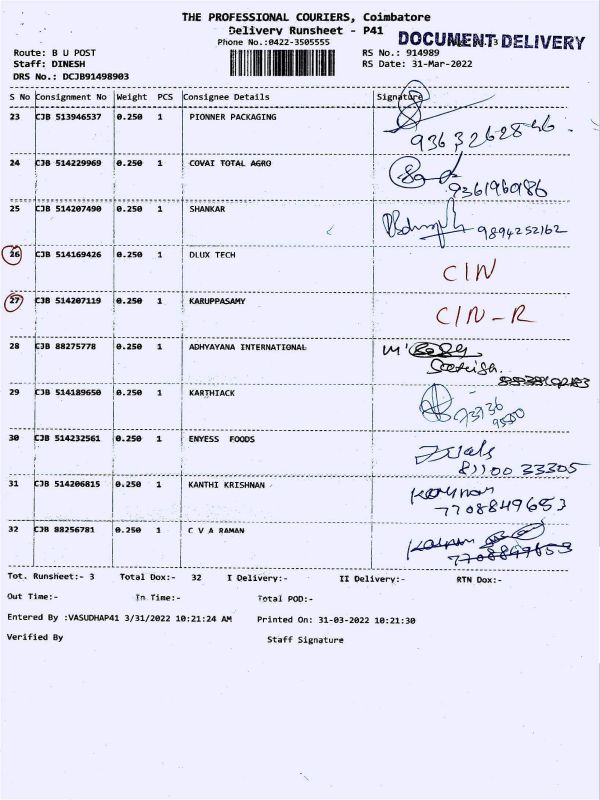 THE PROFESSIONAL COURIERS, Coimbatore
Delivery Runsheet - P41
Phone No.:0422-3505555
DOCUMENT DELIVERY
Route: B U POST
RS No.: 914989
Staff: DINESH
RS Date: 31-Mar-2022
DRS No.: DCJB91498903
S No Consignment No Weight PCS Consignee Details Signature
23 CJB 513946537 0.250 1 PIONNER PACKAGING
24 CJB 514229969 0.250 1 COVAI TOTAL AGRO
936196986
25 CJB 514207490 0.250 1 SHANKAR 9894252162
26 CJB 514169426 0.250 1 DLUX TECH CIN
27 CJB 514207119 0.250 1 KARUPPASAMY CIN-R
28 CJB 88275778 0.250 1 ADHYAYANA INTERNATIONAL
29 CJB 514189650 0.250 1 KARTHIACK
30 CJB 514232561 0.250 1 ENYESS FOODS
81100 33305
31 CJB 514206815 0.250 1 KANTHI KRISHNAN
7708849653
32 CJB 88256781 0.250 1 C V A RAMAN
7708849653
Tot. Runsheet:- 3 Total Dox:- 32 I Delivery:- II Delivery:- RTN Dox:-
Out Time:- In Time:- Total POD:-
Entered By :VASUDHAP41 3/31/2022 10:21:24 AM Printed On: 31-03-2022 10:21:30
Verified By Staff Signature